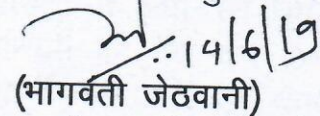 14/6/19
(भागवंती जेठवानी)